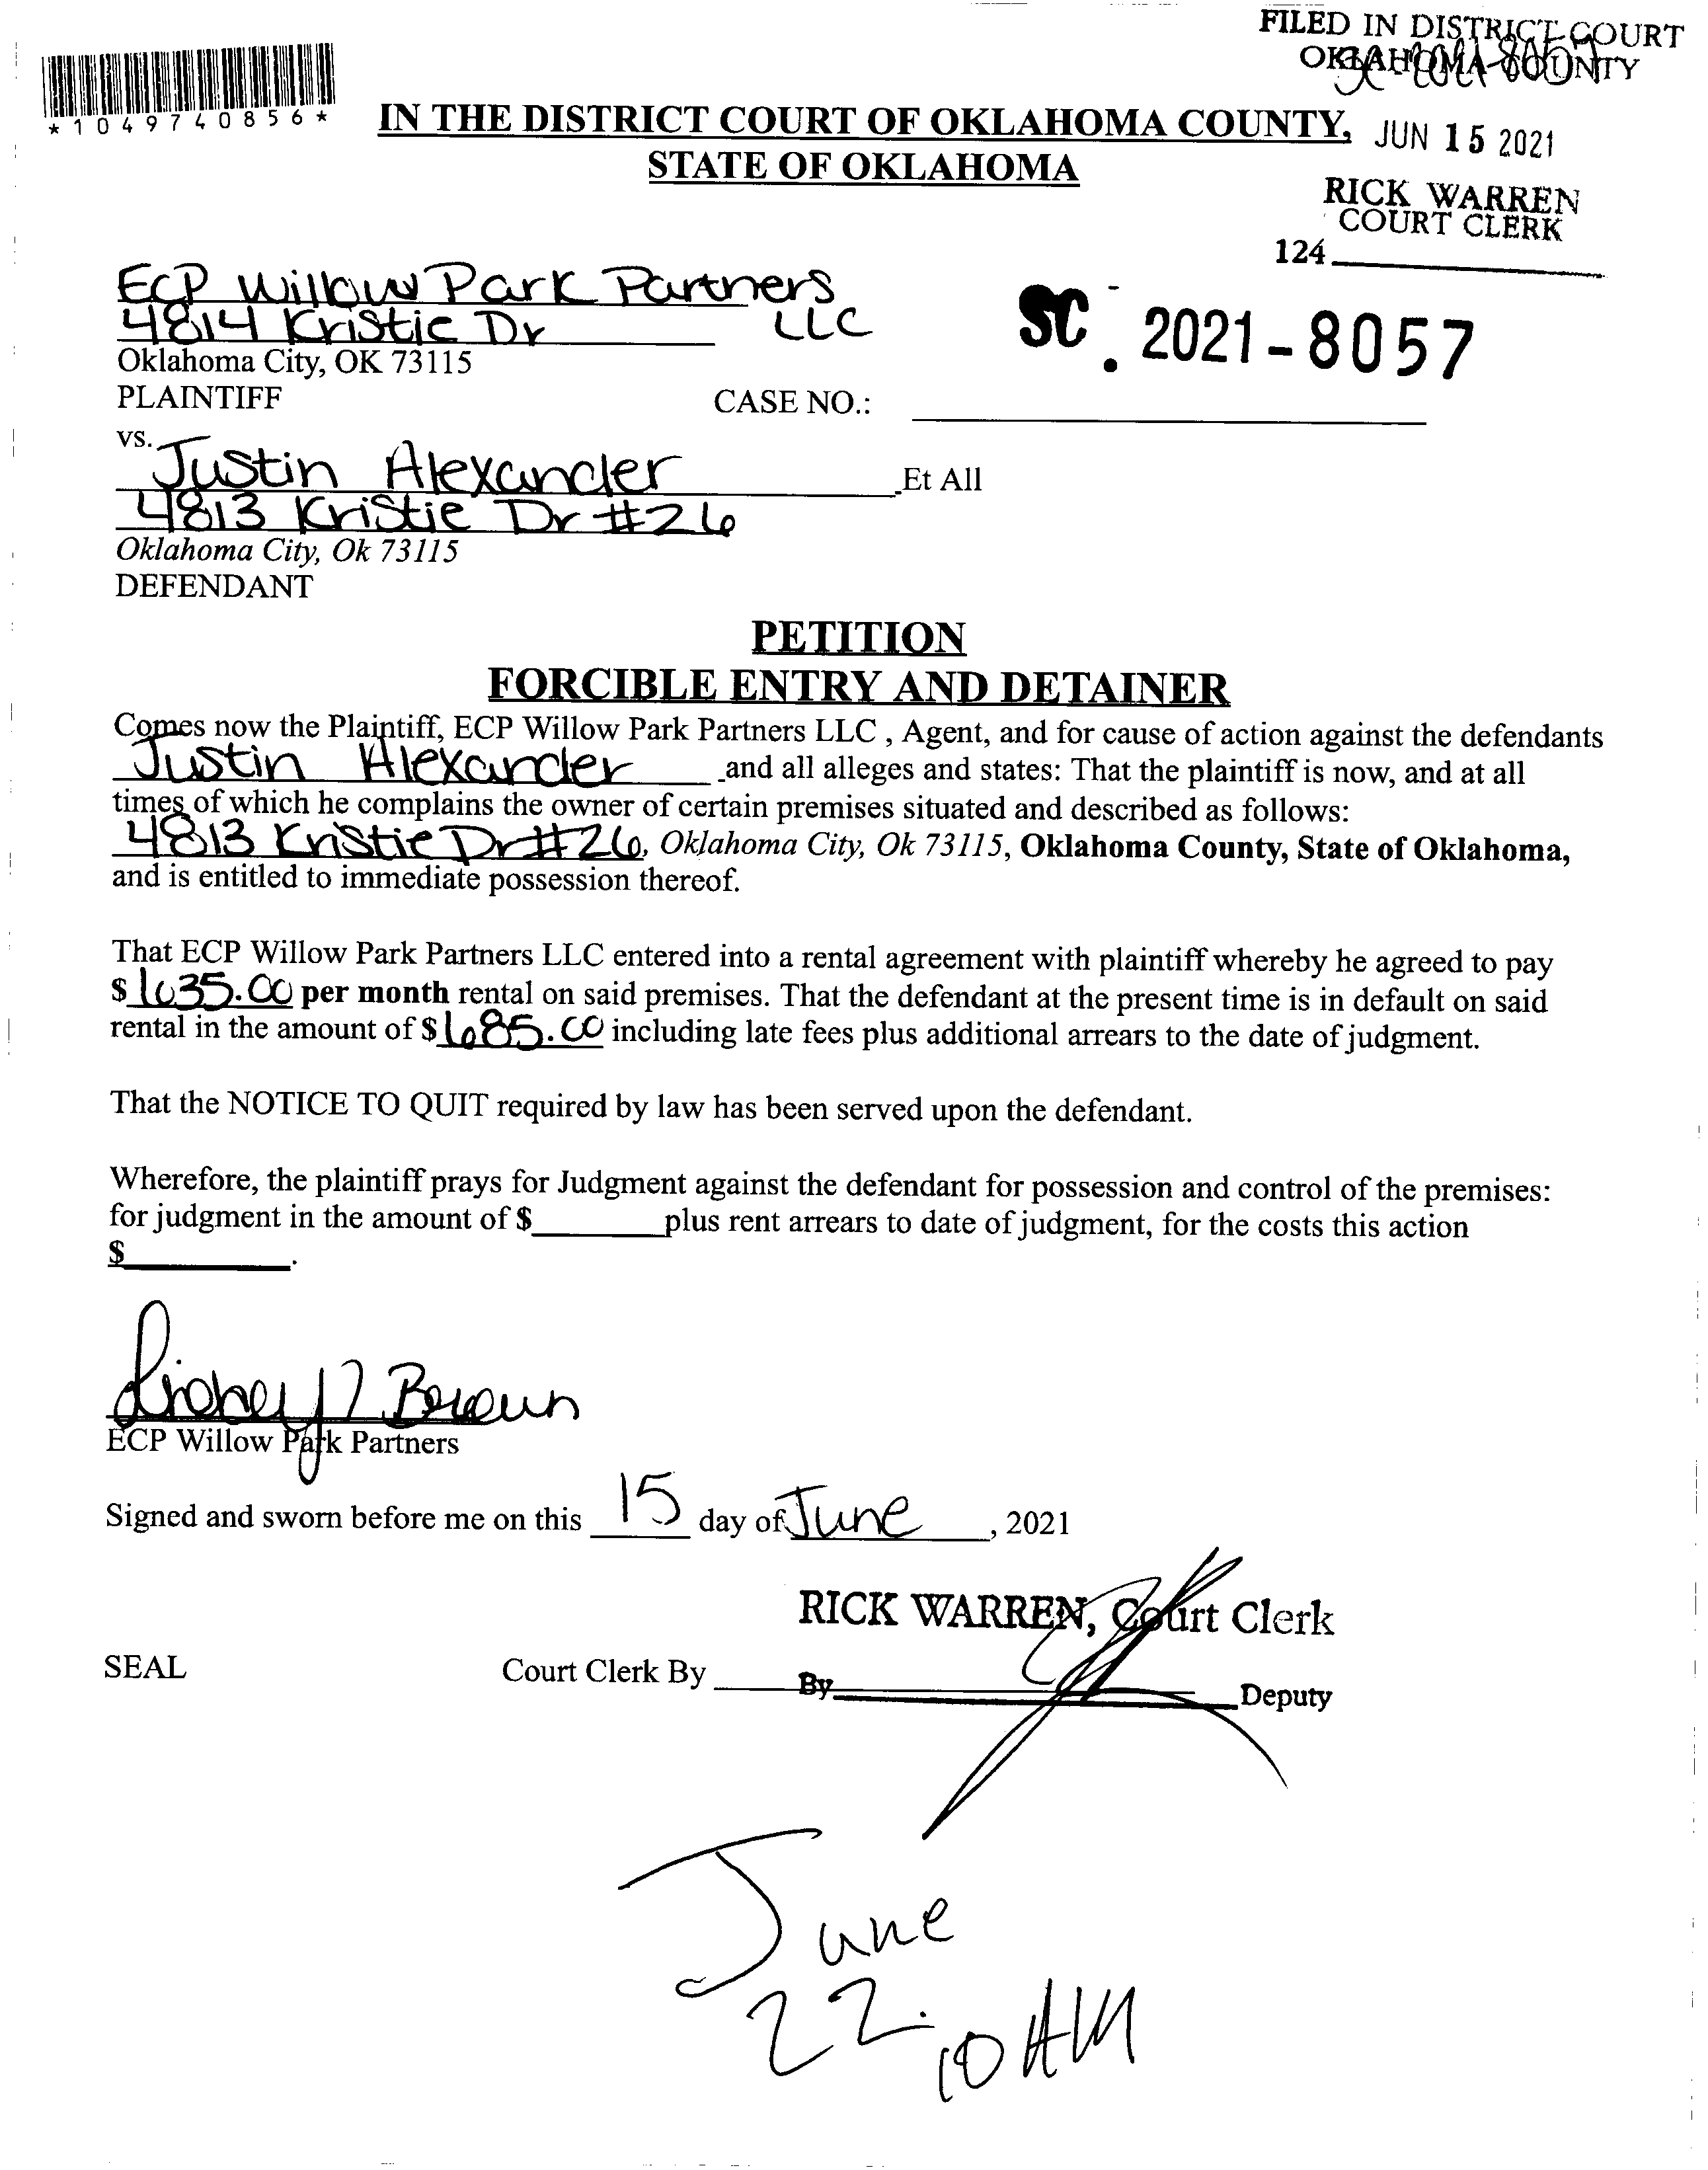 FILED IN DISTRICT COURT
OKLAHOMA COUNTY
SC-2021-8057
*1049740856*
IN THE DISTRICT COURT OF OKLAHOMA COUNTY,
STATE OF OKLAHOMA
JUN 15 2021
RICK WARREN
COURT CLERK
124
ECP Willow Park Partners
LLC
4814 Kristie Dr
Oklahoma City, OK 73115
PLAINTIFF
SC. 2021-8057
CASE NO.:
vs.
Justin Alexander Et All
4813 Kristie Dr #26
Oklahoma City, Ok 73115
DEFENDANT
PETITION
FORCIBLE ENTRY AND DETAINER
Comes now the Plaintiff, ECP Willow Park Partners LLC , Agent, and for cause of action against the defendants
Justin Alexander and all alleges and states: That the plaintiff is now, and at all
times of which he complains the owner of certain premises situated and described as follows:
4813 Kristie Dr #26, Oklahoma City, Ok 73115, Oklahoma County, State of Oklahoma,
and is entitled to immediate possession thereof.
That ECP Willow Park Partners LLC entered into a rental agreement with plaintiff whereby he agreed to pay
$ 635.00 per month rental on said premises. That the defendant at the present time is in default on said
rental in the amount of $ 685.00 including late fees plus additional arrears to the date of judgment.
That the NOTICE TO QUIT required by law has been served upon the defendant.
Wherefore, the plaintiff prays for Judgment against the defendant for possession and control of the premises:
for judgment in the amount of $ plus rent arrears to date of judgment, for the costs this action
$ .
Brown
ECP Willow Park Partners
Signed and sworn before me on this 15 day of June, 2021
RICK WARREN, Court Clerk
SEAL
Court Clerk By By Deputy
June
22.
10 AM